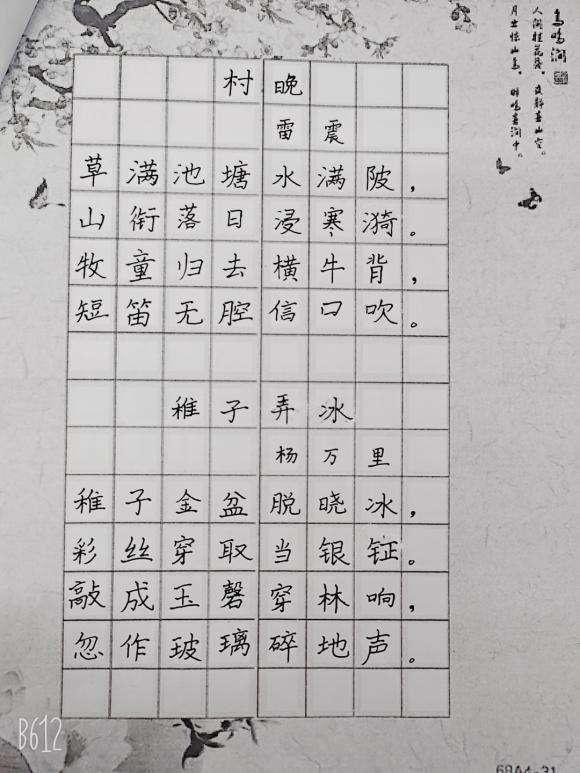 村晚
雷震
草满池塘水满陂，
山衔落日浸寒漪。
牧童归去横牛背，
短笛无腔信口吹。
稚子弄冰
杨万里
稚子金盆脱晓冰，
彩丝穿取当银钲。
敲成玉磬穿林响，
忽作玻璃碎地声。
鸟鸣涧
人闲桂花落，夜静春山空。
月出惊山鸟，时鸣春涧中。
B612